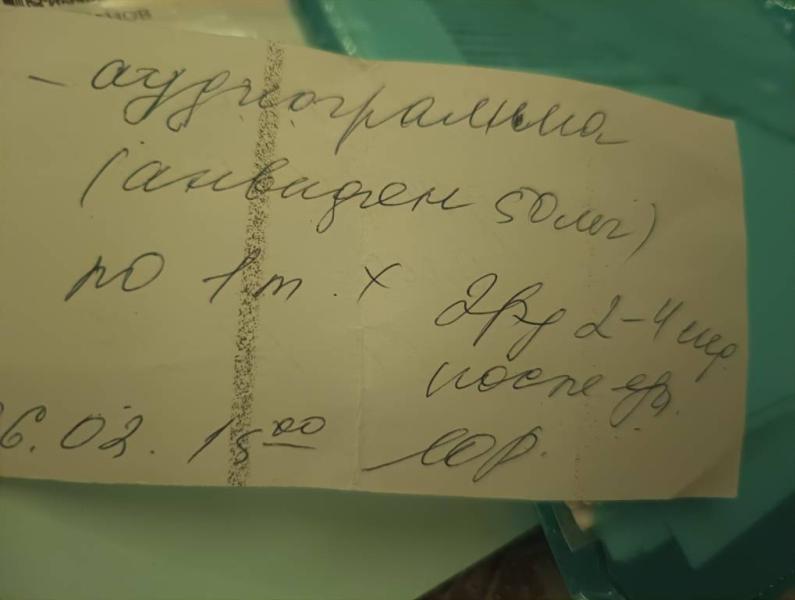 - аудиограмма
(анвифен 50мг)
по 1т. х 2р/д 2-4 нед.
после еды.
6.02. 15 00 ЛОР.